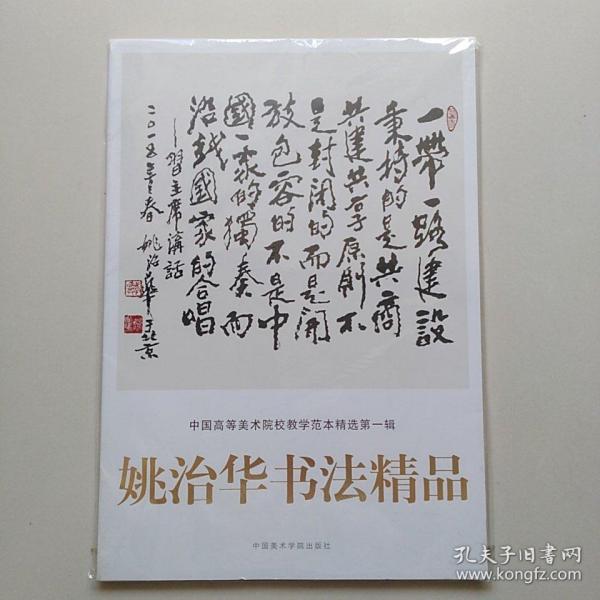 一帶一路建設
秉持的是共商
共建共享原則不
是封闭的而是開
放包容的不是中
國一家的獨奏而
沿线國家的合唱
一習主席講話
二〇一五年春 姚治華于北京
中国高等美术院校教学范本精选第一辑
姚治华书法精品
中国美术学院出版社
孔夫子旧书网
www.kongfz.com